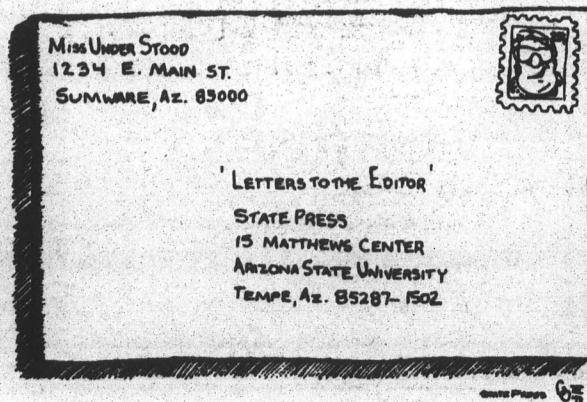 MISS UNDER STOOD
1234 E. MAIN ST.
SUMWARE, AZ. 85000
'LETTERS TO THE EDITOR'
STATE PRESS
15 MATTHEWS CENTER
ARIZONA STATE UNIVERSITY
TEMPE, AZ. 85287-1502
STATE PRESS